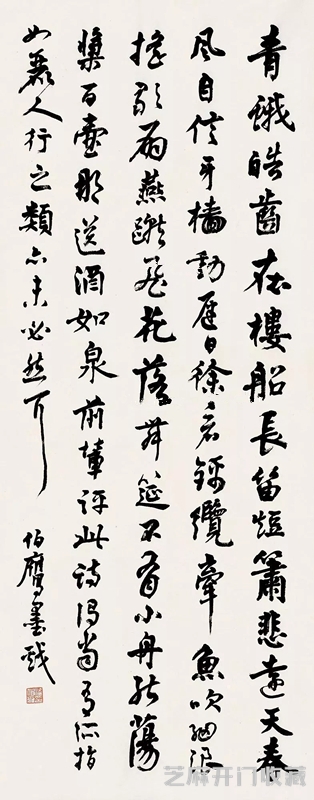 青蛾皓齒在樓船長笛短簫悲遠天春
風自信牙檣動遲日徐看錦纜牽魚吹細浪
搖歌扇燕蹴飛花落舞筵不有小舟能蕩
槳百壺那送酒如泉前輩評此詩當有所指
如麗人行之類亦未必然耳
伯鷹墨戲
芝麻开门收藏